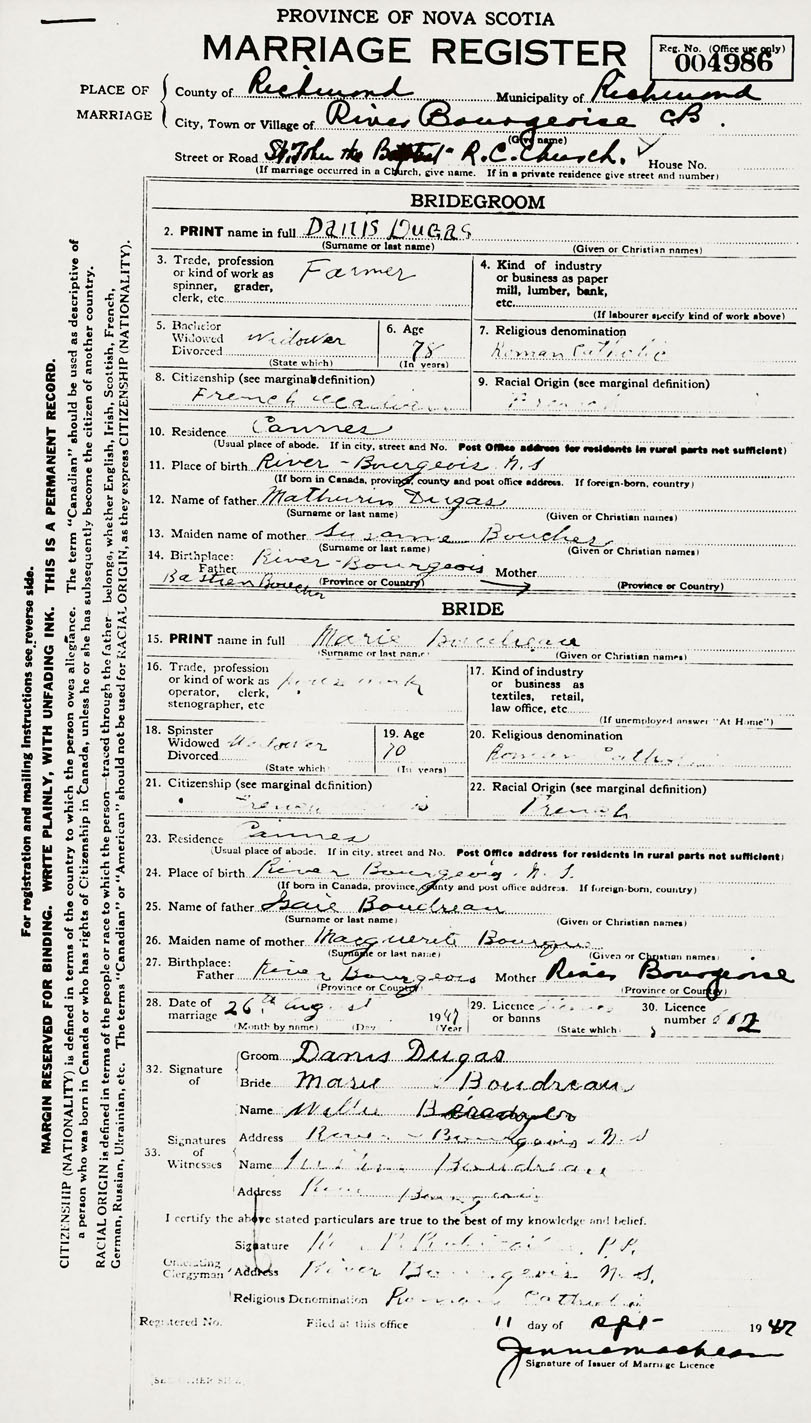 PROVINCE OF NOVA SCOTIA
MARRIAGE REGISTER
Reg. No. (Office use only)
004986
PLACE OF MARRIAGE
County of Richmond Municipality of Richmond
City, Town or Village of River Bourgeoise C.B.
(Give name)
Street or Road St. John the Baptist R.C. Church. House No.
(If marriage occurred in a Church, give name. If in a private residence give street and number)
BRIDEGROOM
2. PRINT name in full Danis Dugas
(Surname or last name) (Given or Christian names)
3. Trade, profession or kind of work as spinner, grader, clerk, etc. Farmer
4. Kind of industry or business as paper mill, lumber, bank, etc.
(If labourer specify kind of work above)
5. Bachelor Widowed Divorced Widower
(State which)
6. Age 78
(In years)
7. Religious denomination
Roman Catholic
8. Citizenship (see marginal definition)
French
9. Racial Origin (see marginal definition)
French
10. Residence Cannes
(Usual place of abode. If in city, street and No. Post Office address for residents in rural parts not sufficient)
11. Place of birth River-Bourgeois N.S
(If born in Canada, province, county and post office address. If foreign-born, country)
12. Name of father Mathurin Dugas
(Surname or last name) (Given or Christian names)
13. Maiden name of mother Susanne Boucher
(Surname or last name) (Given or Christian names)
14. Birthplace: Father River-Bourgeois Mother
Bastien Boucher (Province or Country) (Province or Country)
BRIDE
15. PRINT name in full Marie Boudreau
(Surname or last name) (Given or Christian names)
16. Trade, profession or kind of work as operator, clerk, stenographer, etc
17. Kind of industry or business as textiles, retail, law office, etc.
(If unemployed answer "At Home")
18. Spinster Widowed Divorced Widower
(State which)
19. Age 70
(In years)
20. Religious denomination
Roman Catholic
21. Citizenship (see marginal definition)
French
22. Racial Origin (see marginal definition)
French
23. Residence Cannes
(Usual place of abode. If in city, street and No. Post Office address for residents in rural parts not sufficient)
24. Place of birth River Bourgeois N.S.
(If born in Canada, province, county and post office address. If foreign-born, country)
25. Name of father Boudreau
(Surname or last name) (Given or Christian names)
26. Maiden name of mother Marguerite
(Surname or last name) (Given or Christian names)
27. Birthplace: Father River Bourgeois Mother River Bourgeoise
(Province or Country) (Province or Country)
28. Date of marriage 26th August 1947
(Month by name) (Day (Year
29. Licence or banns
(State which)
30. Licence number
32. Signature of
Groom Danis Dugas
Bride Marie Boudreau
33. Signatures of Witnesses
Name Willie
Address River-Bourgeois N.S
Name Boudreau
Address River Bourgeois
I certify the above stated particulars are true to the best of my knowledge and belief.
Officiating Clergyman
Signature P.P.
Address River Bourgeois N.S.
Religious Denomination Roman Catholic
Registered No. Filed at this office 11 day of Sept 1947
Signature of Issuer of Marriage Licence
(SEE OTHER SIDE)
For registration and mailing instructions see reverse side.
MARGIN RESERVED FOR BINDING. WRITE PLAINLY, WITH UNFADING INK. THIS IS A PERMANENT RECORD.
CITIZENSHIP (NATIONALITY) is defined in terms of the country to which the person owes allegiance. The term "Canadian" should be used as descriptive of
a person who was born in Canada or who has rights of Citizenship in Canada, unless he or she has subsequently become the citizen of another country.
RACIAL ORIGIN is defined in terms of the people or race to which the person—traced through the father—belongs, whether English, Irish, Scottish, French,
German, Russian, Ukrainian, etc. The terms "Canadian" or "American" should not be used for RACIAL ORIGIN, as they express CITIZENSHIP (NATIONALITY).